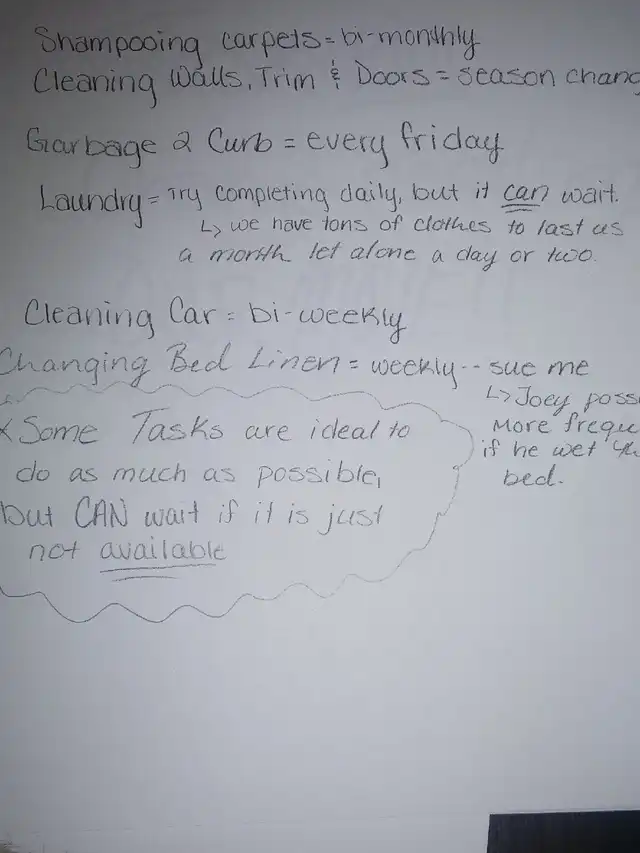 Shampooing carpets = bi-monthly
Cleaning Walls, Trim & Doors = season chang
Garbage 2 Curb = every friday
Laundry = Try completing daily, but it can wait.
↳ we have tons of clothes to last us
a month let alone a day or two.
Cleaning Car = bi-weekly
Changing Bed Linen = weekly -- sue me
↳ Joey poss
More freque
if he wet the
bed.
* Some Tasks are ideal to
do as much as possible,
but CAN wait if it is just
not available